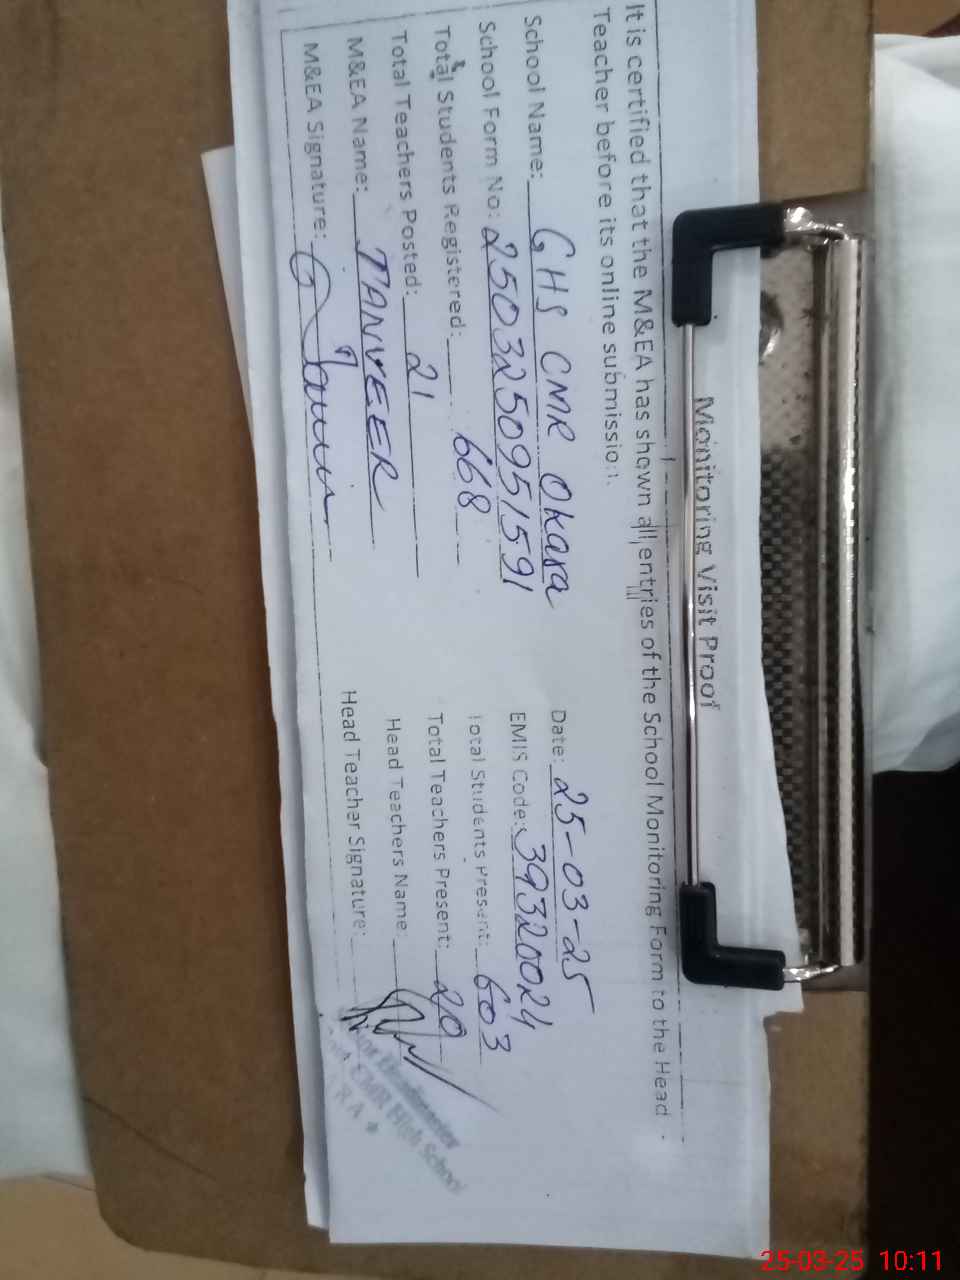 Monitoring Visit Proof
It is certified that the M&EA has shown all entries of the School Monitoring Form to the Head
Teacher before its online submission.
School Name: GHS CMR Okara Date: 25-03-25
School Form No: 2503250951591 EMIS Code: 39320024
Total Students Registered: 668 Total Students Present: 603
Total Teachers Posted: 21 Total Teachers Present: 20
M&EA Name: TANVEER Head Teachers Name:
M&EA Signature: Head Teacher Signature:
CMR High School
25-03-25 10:11